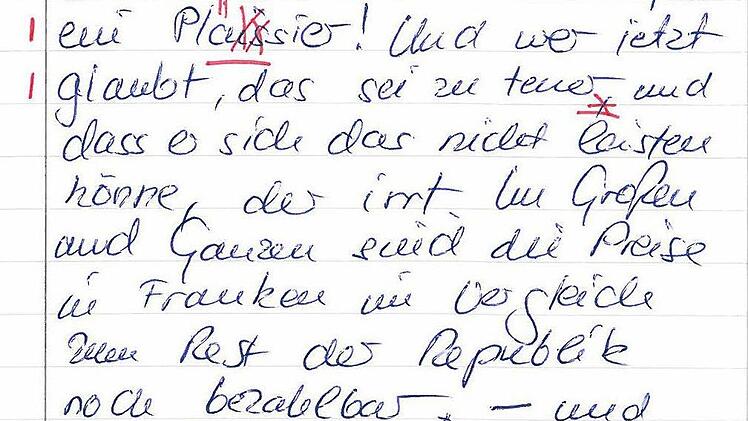 ein Plaissier! Und wer jetzt
glaubt, das sei zu teuer, und
dass er sich das nicht leisten
könne, der irrt Im Großen
und Ganzen sind die Preise
in Franken im Vergleich
zum Rest der Republik
noch bezahlbar. – und